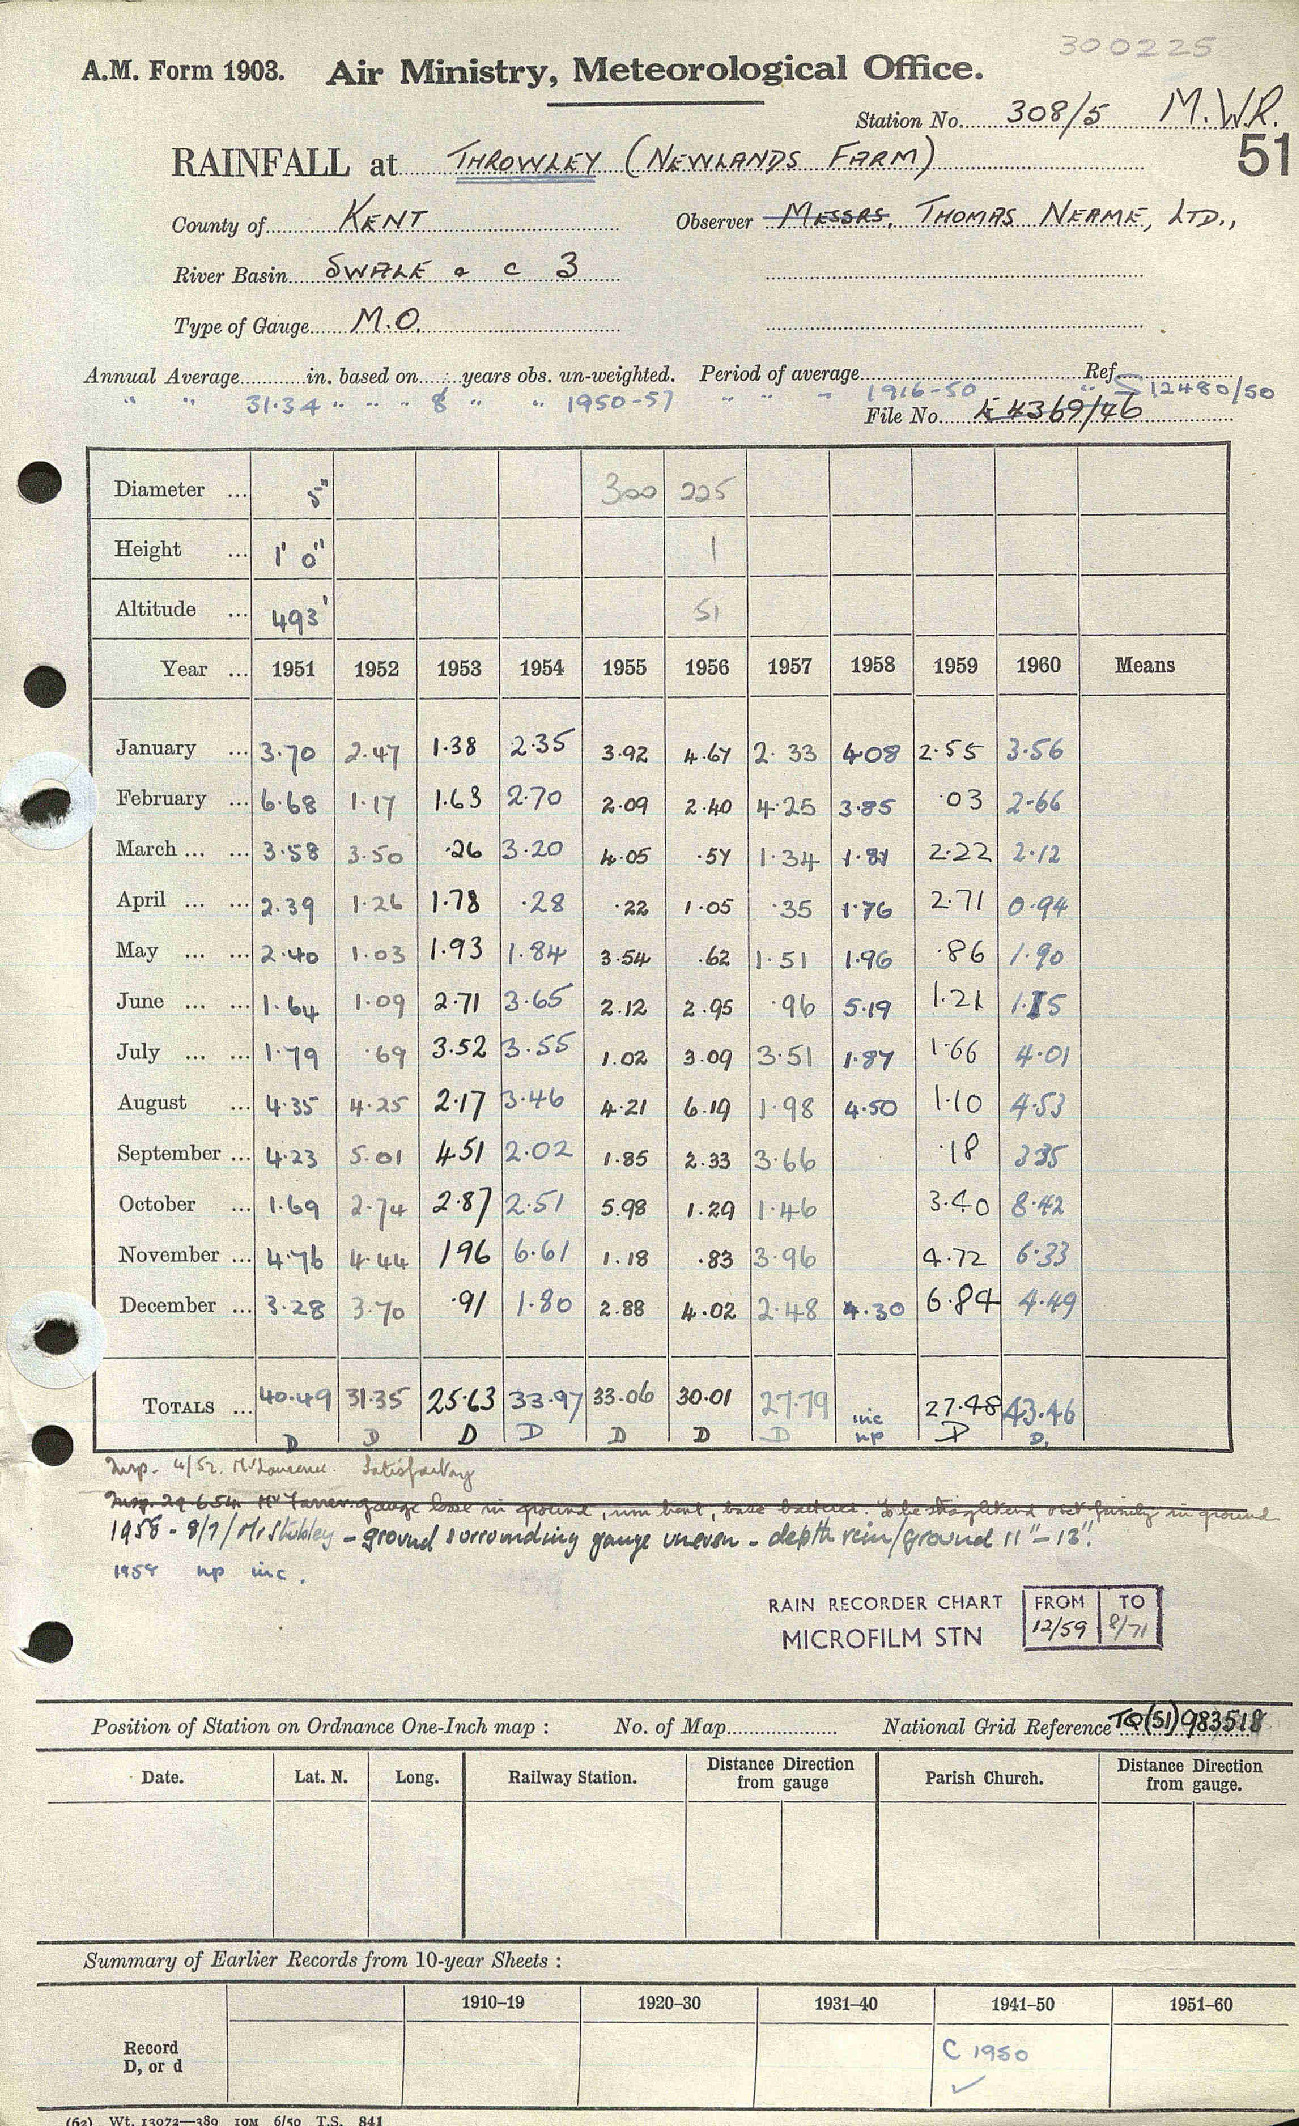 300225
A.M. Form 1903. Air Ministry, Meteorological Office.
Station No. 308/5 M.W.R.
51
RAINFALL at THROWLEY (NEWLANDS FARM)
County of KENT Observer MESSRS. THOMAS NEAME, LTD.,
River Basin SWALE & C 3
Type of Gauge M.O.
Annual Average in. based on years obs. un-weighted. Period of average Ref
" " 31.34 " " " 8 " " 1950-57 " " " 1916-50 " S 12480/50
File No. K 4369/46
Diameter ... 5" 300 225
Height ... 1' 0" 1
Altitude ... 493' 51
Year ... 1951 1952 1953 1954 1955 1956 1957 1958 1959 1960 Means
January ... 3.70 2.47 1.38 2.35 3.92 4.67 2.33 4.08 2.55 3.56
February ... 6.68 1.17 1.63 2.70 2.09 2.40 4.25 3.85 .03 2.66
March ... ... 3.58 3.50 .26 3.20 4.05 .57 1.34 1.81 2.22 2.12
April ... ... 2.39 1.26 1.78 .28 .22 1.05 .35 1.76 2.71 0.94
May ... ... 2.40 1.03 1.93 1.84 3.54 .62 1.51 1.96 .86 1.90
June ... ... 1.64 1.09 2.71 3.65 2.12 2.95 .96 5.19 1.21 1.15
July ... ... 1.79 .69 3.52 3.55 1.02 3.09 3.51 1.87 1.66 4.01
August ... 4.35 4.25 2.17 3.46 4.21 6.19 1.98 4.50 1.10 4.53
September ... 4.23 5.01 4.51 2.02 1.85 2.33 3.66 .18 3.35
October ... 1.69 2.74 2.87 2.51 5.98 1.29 1.46 3.40 8.42
November ... 4.76 4.44 1.96 6.61 1.18 .83 3.96 4.72 6.33
December ... 3.28 3.70 .91 1.80 2.88 4.02 2.48 4.30 6.84 4.49
TOTALS ... 40.49 31.35 25.63 33.97 33.06 30.01 27.79 inc 27.48 43.46
D D D D D D D np D D.
Insp. 4/52. Mr Laurence. Satisfactory
Insp. 29.6.54. Mr gauge loose in ground, rim bent, base battered. To be straightened & set firmly in ground
1956 - 8/7/Mr Stibbley - ground surrounding gauge uneven - depth rim/ground 11"-13".
1958 np inc.
RAIN RECORDER CHART FROM TO
MICROFILM STN 12/59 8/71
Position of Station on Ordnance One-Inch map : No. of Map National Grid Reference TQ(51)983518
Date. Lat. N. Long. Railway Station. Distance Direction from gauge Parish Church. Distance Direction from gauge.
Summary of Earlier Records from 10-year Sheets :
1910-19 1920-30 1931-40 1941-50 1951-60
Record
D, or d
C 1950
✓
(62) Wt. 13072—389 10M 6/50 T.S. 841